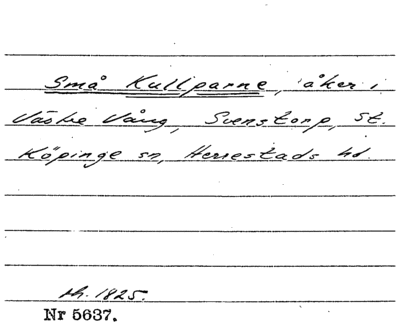 Små Kullparne, åker i
Västre Vång, Svenstorp, St.
Köpinge sn, Herrestads hd.
sk. 1825.
Nr 5637.